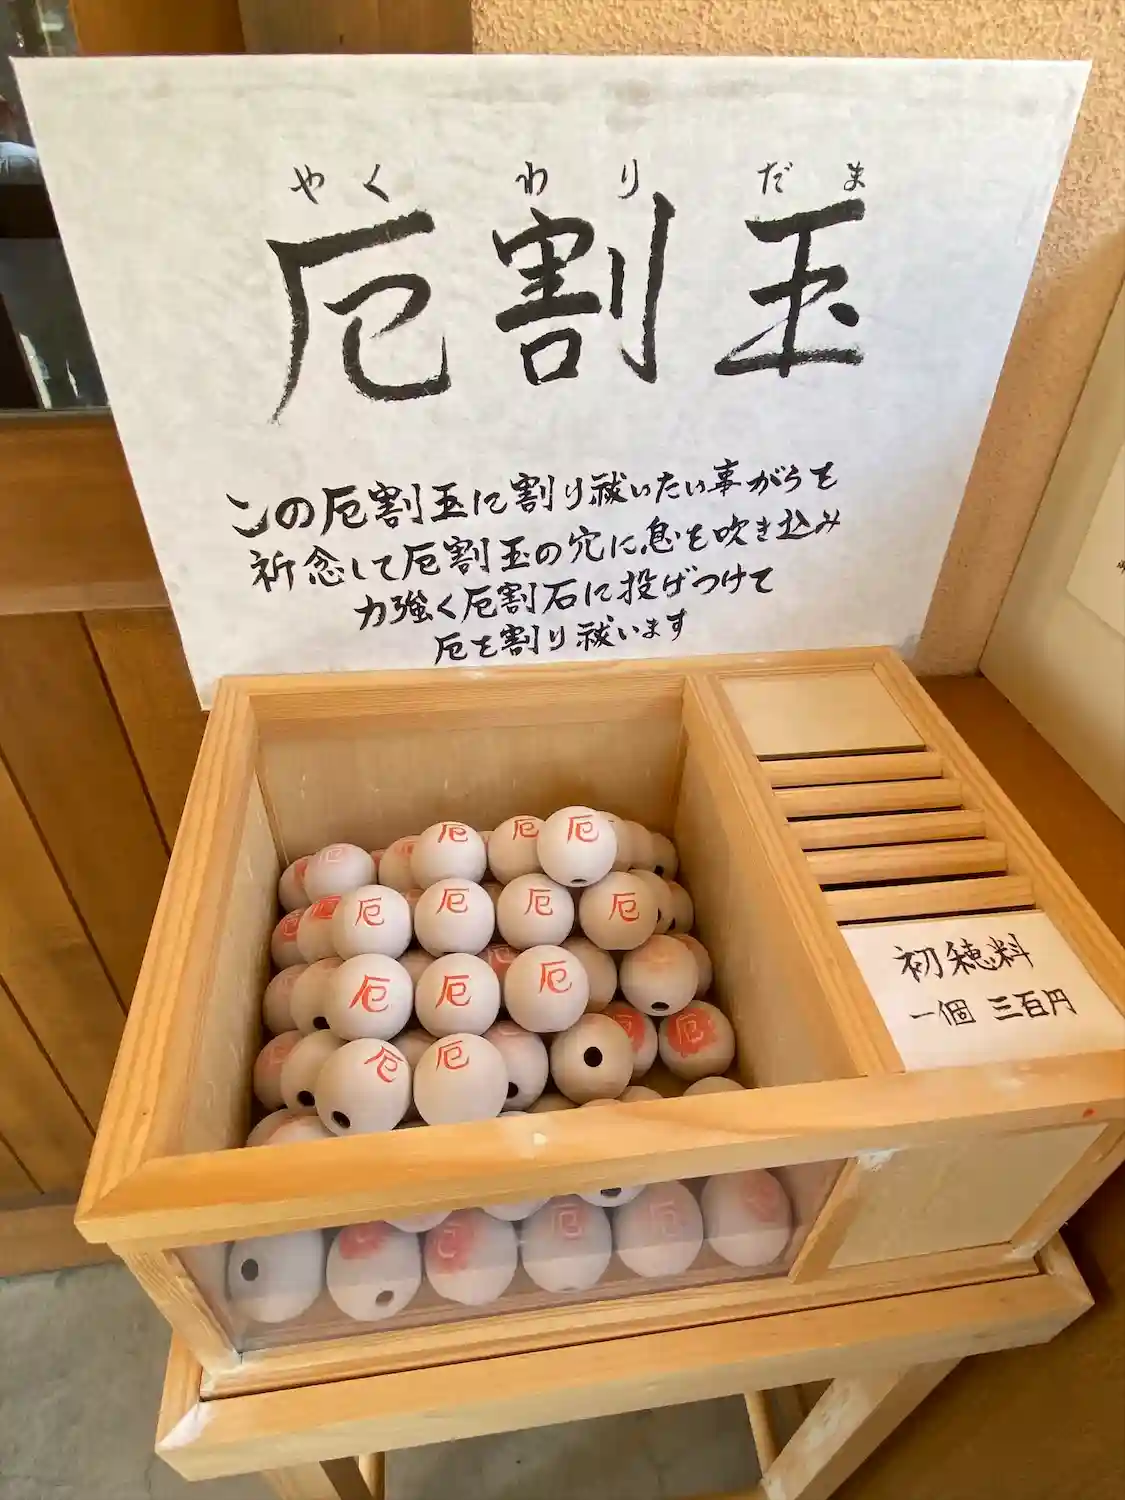 やく わり だま
厄割玉
この厄割玉に割り祓いたい事がらを
祈念して厄割玉の穴に息を吹き込み
力強く厄割石に投げつけて
厄を割り祓います
厄
厄
厄
厄
厄
厄
厄
厄
厄
厄
厄
厄
初穂料
一個 三百円